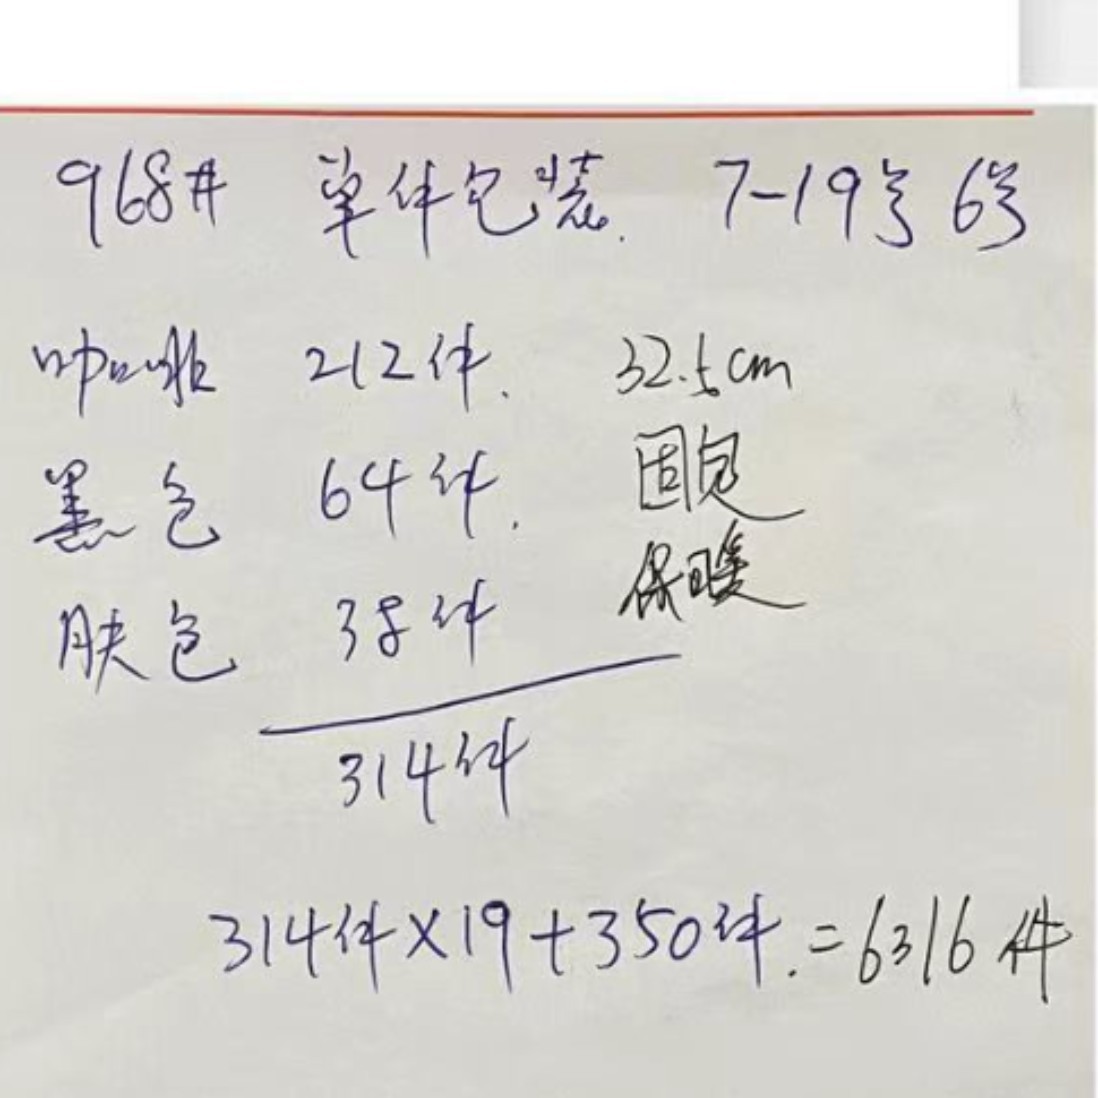 968# 单件包装. 7-19号 6号
咖啡 212件. 32.5cm
黑色 64件. 固包
肤色 38件 保暖
314件
314件×19+350件.=6316件